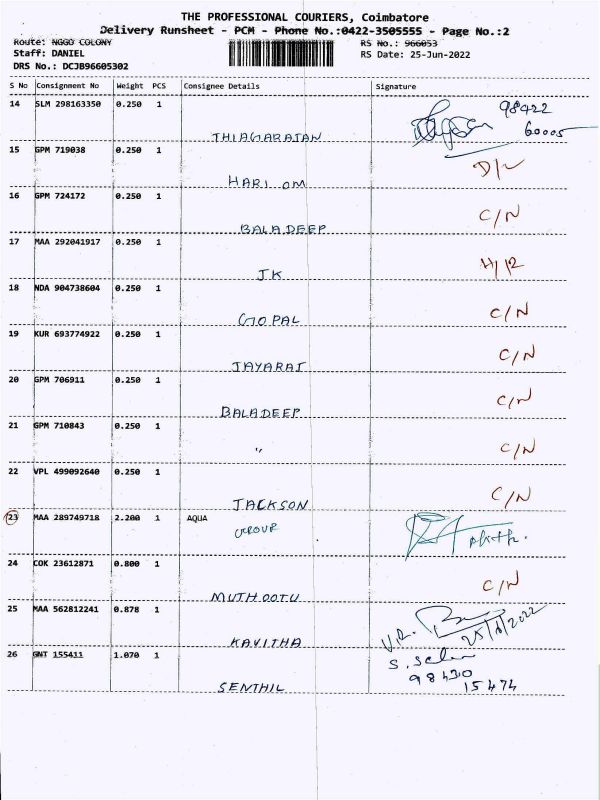 THE PROFESSIONAL COURIERS, Coimbatore
Delivery Runsheet - PCM - Phone No.:0422-3505555 - Page No.:2
Route: NGGO COLONY RS No.: 966053
Staff: DANIEL RS Date: 25-Jun-2022
DRS No.: DCJB96605302
S No Consignment No Weight PCS Consignee Details Signature
14 SLM 298163350 0.250 1 98422
THIAGARAJAN 60005
15 GPM 719038 0.250 1
HARI OM D/L
16 GPM 724172 0.250 1
BALADEEP C/N
17 MAA 292041917 0.250 1
JK
18 NDA 904738604 0.250 1
GOPAL C/N
19 KUR 693774922 0.250 1
JAYARAJ C/N
20 GPM 706911 0.250 1
BALADEEP C/N
21 GPM 710843 0.250 1
" C/N
22 VPL 499092640 0.250 1
JACKSON C/N
23 MAA 289749718 2.200 1 AQUA
GROUP
24 COK 23612871 0.800 1
MUTHOOTU C/N
25 MAA 562812241 0.878 1
KAVITHA V.R. 25/6/2022
26 GNT 155411 1.070 1 S.
98430
SENTHIL 15474